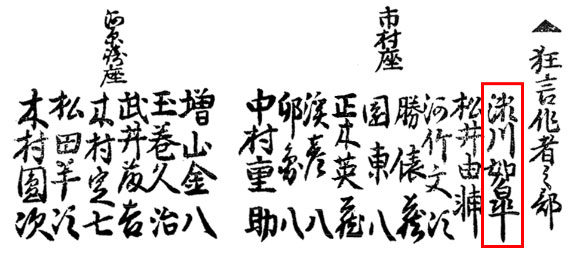 ▲狂言作者之部
市村座
瀬川如皐
松井由輔
河竹文次
勝俵蔵
園東八
正木英蔵
中村重助
河原崎座
増山金八
玉巻久治
武井藤吉
木村定七
松田半次
木村園次